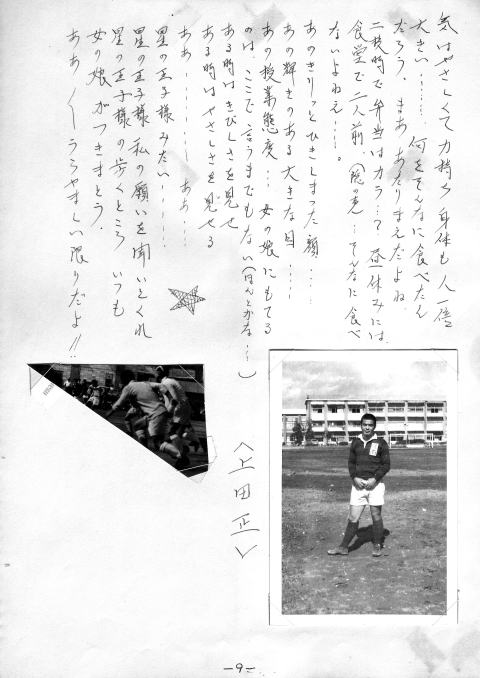 気はやさしくて力持ち 身体も人一倍
大きい……… 何をそんなに食べたん
だろう。まあ あたりまえだよね。
二校時で弁当はカラ…? 昼休みには
食堂で二人前。(隠の声…そんなに食べ
ないよねえ…。
あのきりっとひきしまった顔……
あの輝きのある大きな目……
あの授業態度… 女の娘にもてる
のは、ここで言うまでもない(ほんとかな…)
ある時はきびしさを見せ
ある時はやさしさを見せる
ああ……… ああ………
星の王子様みたい………
星の王子様 私の願いを聞いてくれ
星の王子様の歩くところ いつも
女の娘がつきまとう。
ああ〱うらやましい限りだよ!!
<上田正>
-9-